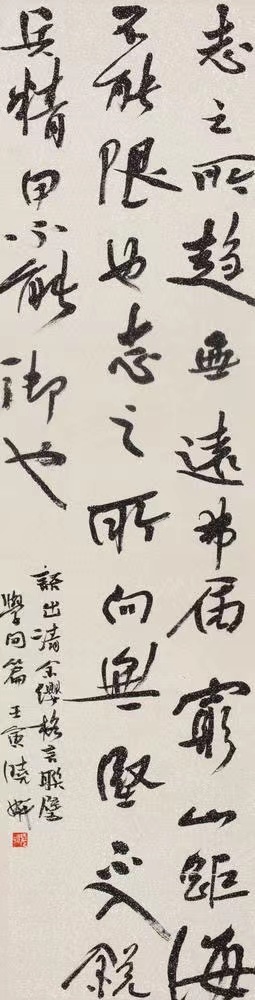 志之所趋无远弗届穷山距海
不能限也志之所向無坚不入锐
兵精甲不能御也
語出清金缨格言聯璧
學问篇 壬寅 晓妍